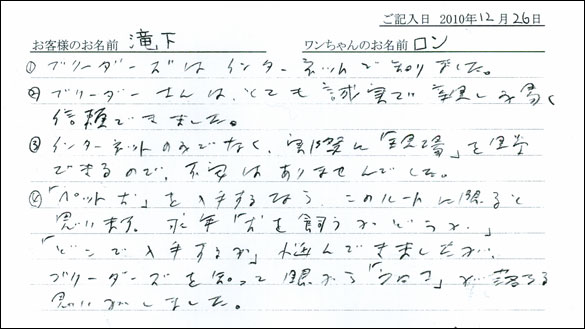 ご記入日 2010年12月26日
お客様のお名前 滝下 ワンちゃんのお名前 ロン
① ブリーダーズはインターネットで知りました。
② ブリーダーさんは、とても誠実で親しみ易く
信頼できました。
③ インターネットのみでなく、実際に「現場」を見学
できるので、不安はありませんでした。
④ 「ペット犬」を入手するなら、このルートに限ると
思います。永年「犬を飼うかどうか」
「どこで入手するか」悩んできましたが、
ブリーダーズを知って眼から「ウロコ」が落ちる
思いがしました。